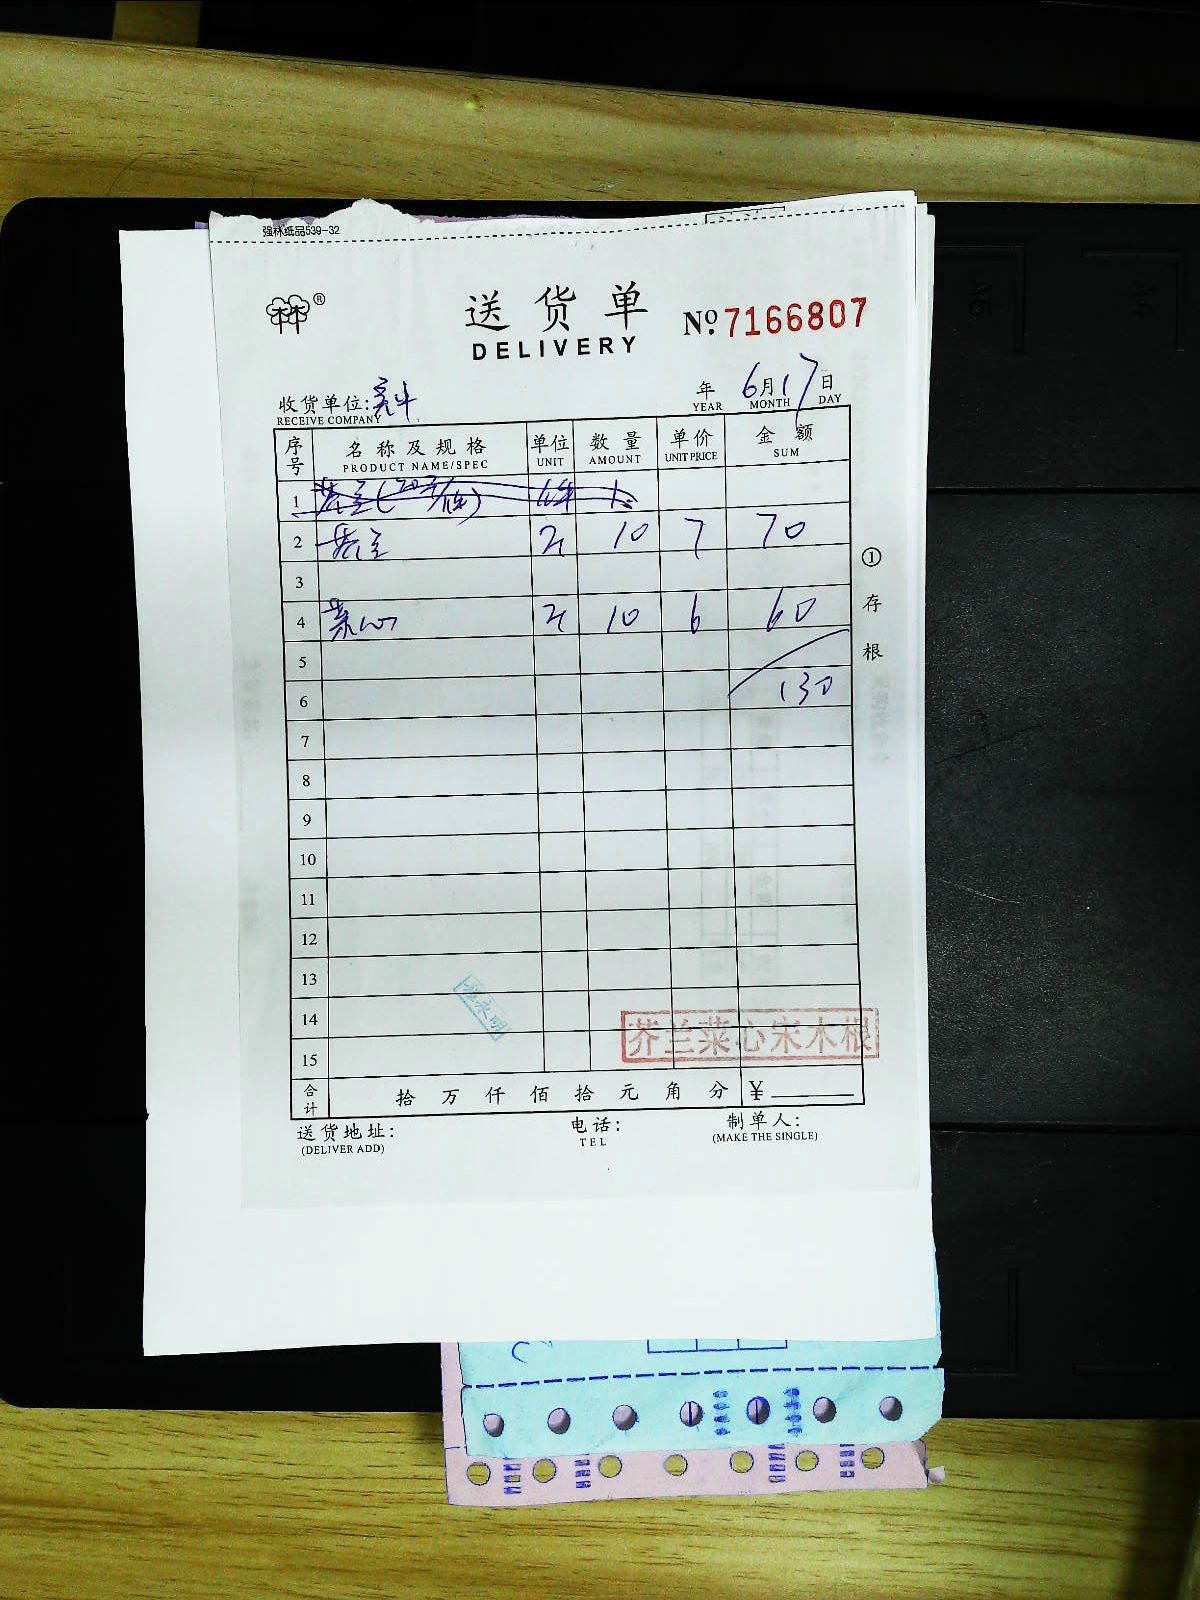 强林纸品539-32
林®
送货单
DELIVERY
№ 7166807
收货单位:
RECEIVE COMPANY
年 6月17日
YEAR MONTH DAY
序号 名称及规格 单位 数量 单价 金额
PRODUCT NAME/SPEC UNIT AMOUNT UNIT PRICE SUM
1
2 斤 10 7 70
3
4 菜心 斤 10 6 60
5
6 130
7
8
9
10
11
12
13
14
15
①存根
芥兰菜心宋木根
合计 拾 万 仟 佰 拾 元 角 分 ¥
送货地址: 电话: 制单人:
(DELIVER ADD) TEL (MAKE THE SINGLE)